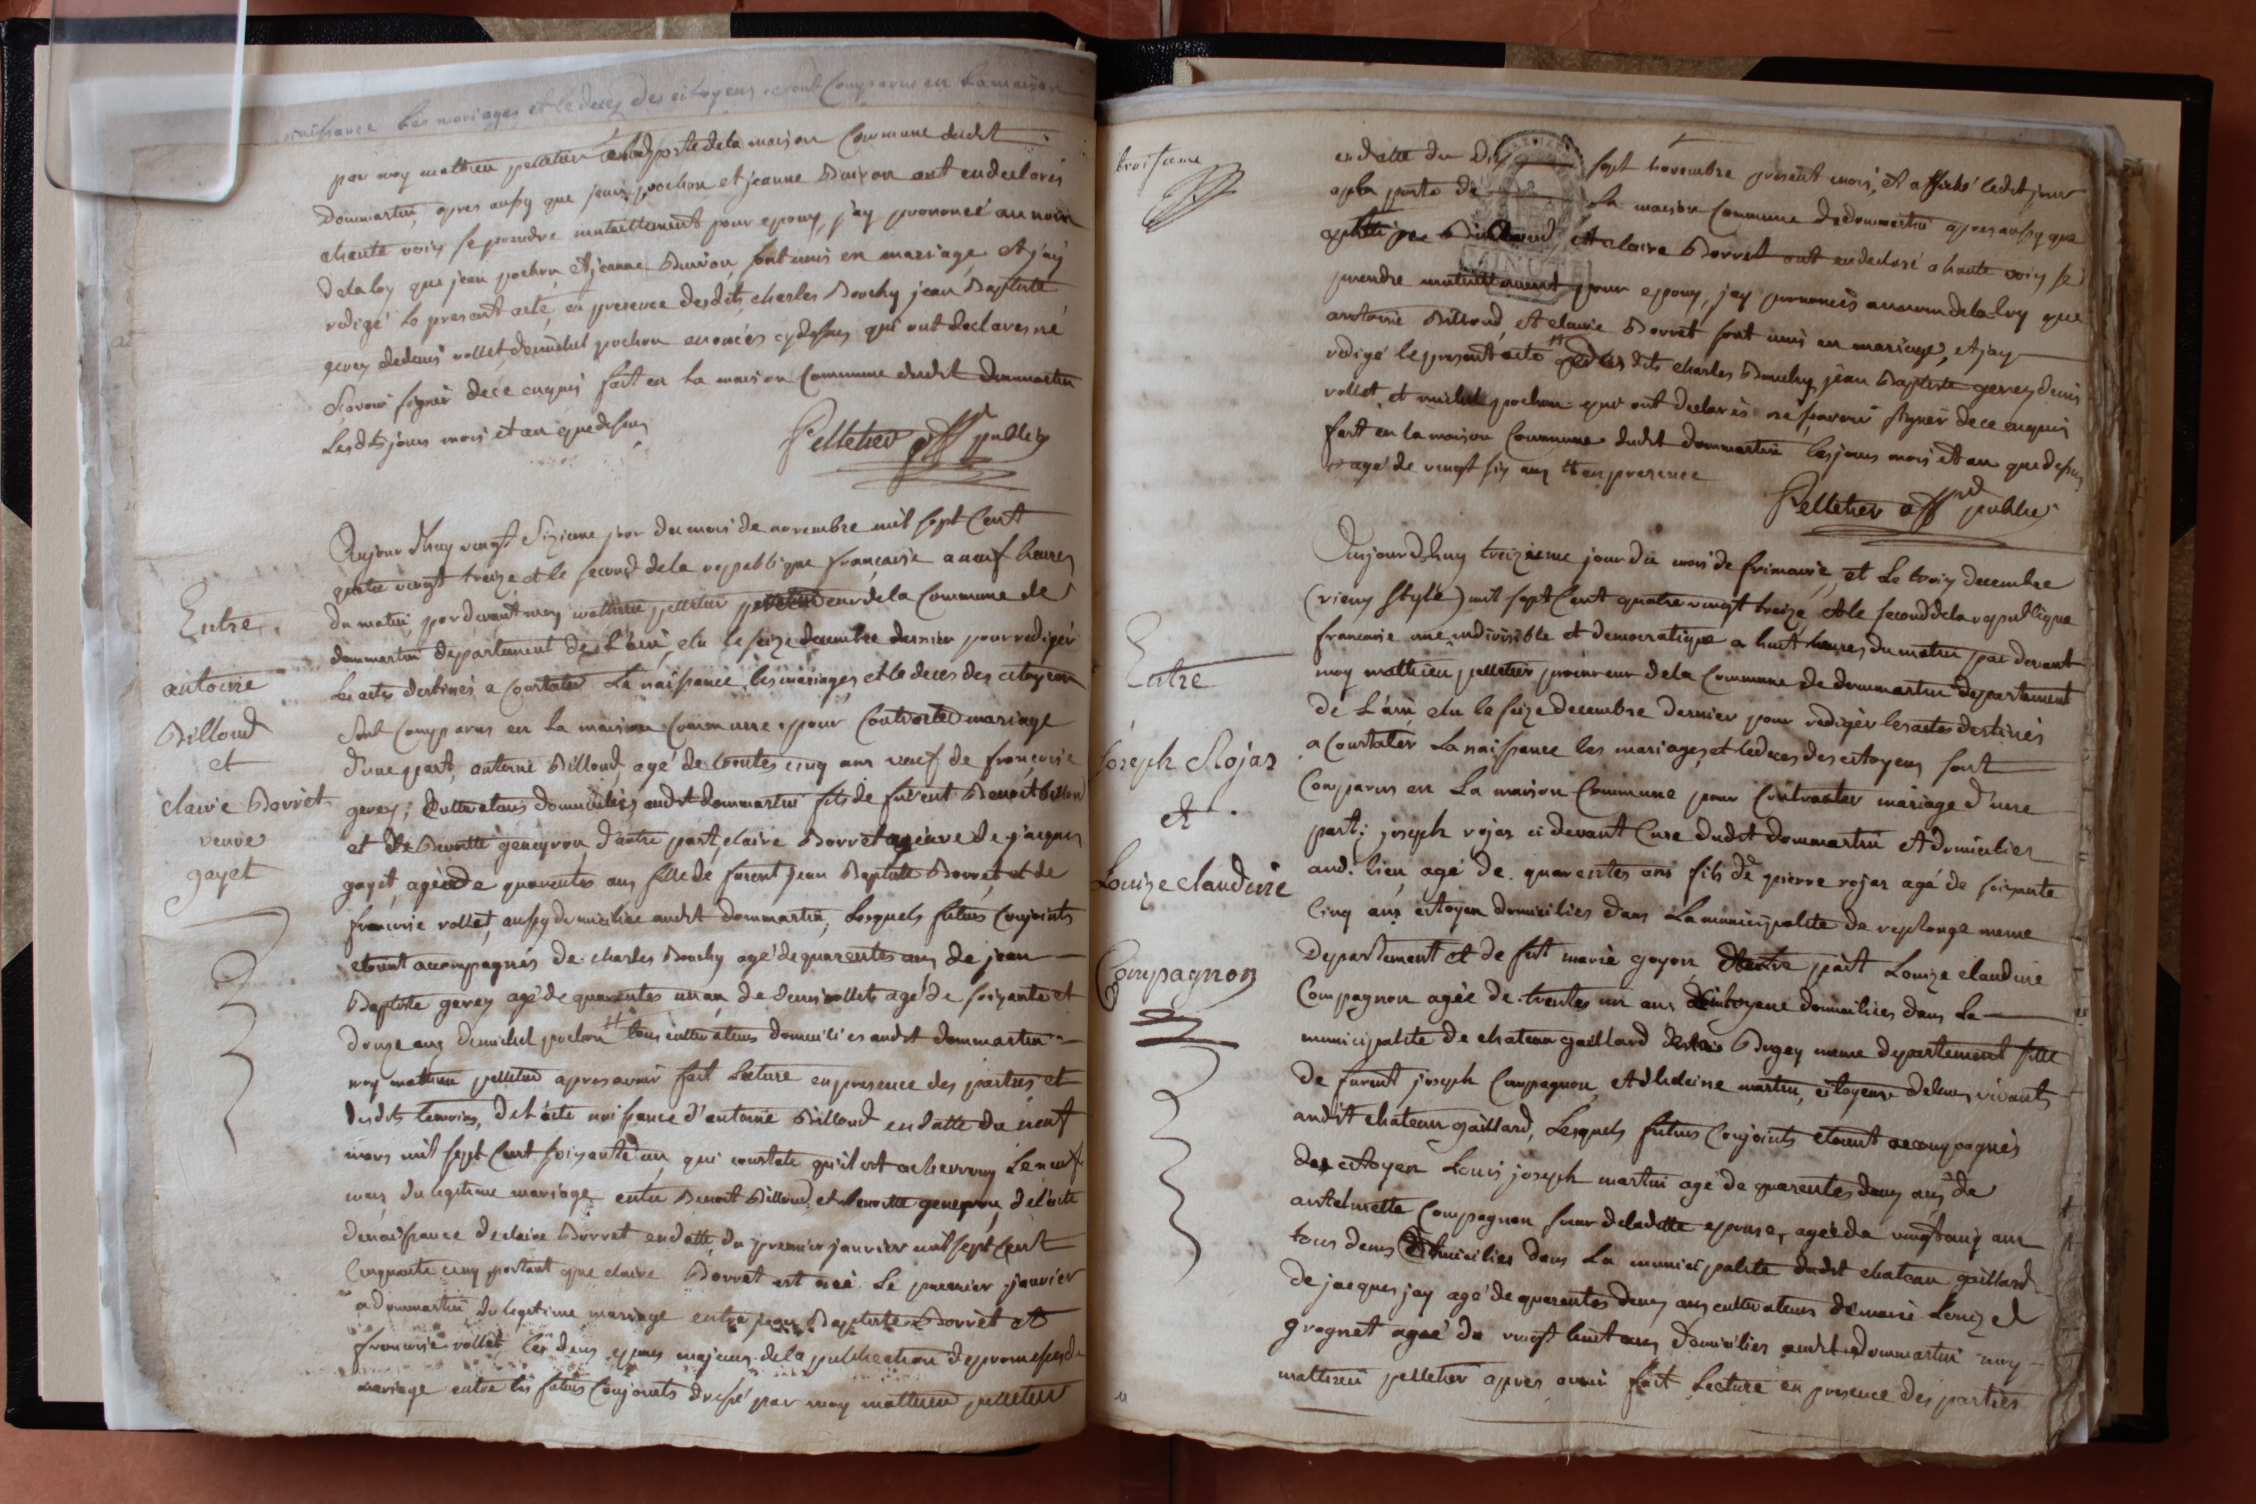 naissance les mariages et le deces des citoyens seront Comparus en La maison
par moy mathieu pelletier porte de la maison Commune dudit
Dommartin, apres aussy que jean pochon et jeanne Buiron ont en declarés
ahaute voix se prendre mutuellement pour epoux, j'ay prononcé au nom
de la loy que jean pochon et jeanne Buiron, sont unis en mariage et j'ay
redigé le present acte, en presence desdits, charles Bouchy jean Baptiste
gerey de denis rollet, de michel pochon enoncés cydessus qui ont declares ne
scavoir signer de ce enquis fait en La maison Commune dudit dommartin
Lesdits jours mois et an que dessus
Pelletier off public
Entre
antoine
Billoud
et
claire Borret
veuve
gayet
Aujourd'huy vingt Sixieme jour du mois de novembre mil sept Cent
quatre vingt treize et le second de la republique francaise a neuf heures
du matin, par devant moy mathieu pelletier procureur de la Commune de
dommartin departement de L'ain, elu le seize decembre dernier pour rediger
Les actes destinés a Constater La naissance, les mariages, et le deces des citoyens
Sont Comparus en La maison Commune pour Contracter mariage
d'une part, antoine Billoud, agé de trentes cinq ans veuf de francoise
gerey; Cultivateurs domiciliés audit dommartin fils de furent Benoit billoud
et de Benoitte geneyron, d'autre part, claire Borret veuve de jacques
gayet, agée de quarentes ans fille de furent jean Baptiste Borret et de
francoise rollet, aussy domiciliée audit dommartin; Lesquels futurs Conjoints
etount accompagnés de charles Bouchy agé de quarentes ans, de jean
Baptiste gerey agé de quarentes un an, de denis rollet agé de soixante et
douze ans, de michel pochon # tous cultivateurs domiciliés audit dommartin
moy mathieu pelletier apres avoir fait Lecture en presence des parties et
desdits temoins, de L'acte naissance d'antoine Billoud en datte du neuf
mars mil sept Cent soixante un, qui constate qu'il est Le neuf
mars du legitime mariage entre Benoit Billoud, et Benoitte geneyron, de l'acte
de naissance de claire Borret en datte, du premier janvier mil sept Cent
Cinquante cinq portant que claire Borret est née Le premier janvier
a dommartin du legitime mariage entre jean Baptiste Borret et
francoise rollet, les deux epoux majeurs de la publication de promesses de
mariage entre les futurs Conjoints dressé par moy mathieu pelletier
troisieme
en datte du Dix sept novembre present mois, et affiché ledit jour
a la porte de La maison Commune de dommartin apres aussy que
Billoud, et claire Borret ont en declaré a haute voix se
prendre mutuellement pour epoux, jay prononcés au nom de la loy que
antoine Billoud, et claire Borret sont unis en mariage, et jay
redigé le present acte # lesdits charles Bouchy, jean Baptiste gerey denis
rollet, et michel pochon qui ont declarés ne scavoir signer de ce enquis
fait en la maison Commune dudit dommartin les jours mois et an que dessus
agé de vingt six ans # en presence
Pelletier off public
Entre
joseph Rojas
et
Louize claudine
Compagnon
Aujourd'huy treizieme jour du mois de frimaire, et Le trois decembre
(vieux style) mil sept Cent quatre vingt treize, et le second de la republique
francaise une indivisible et democratique a huit heures du matin par devant
moy mathieu pelletier procureur de la Commune de dommartin departement
de L'ain elu le seize decembre dernier pour rediger les actes destinés
a Constater La naissance les mariages, et le deces des citoyens sont
Comparus en La maison Commune pour Contracter mariage d'une
part; joseph rojas ci devant Cure dudit dommartin et domicilier
aud. lieu, agé de quarentes ans fils de pierre rojas agé de soixante
Cinq ans citoyen domiciliés dans La municipalite de replonge meme
Departement et de fut marie goyon d'autre part Louize claudine
Compagnon agée de trentes un ans citoyene domiciliées dans La
municipalité de chateau gaillard Bugey meme departement fille
de furent joseph Compagnon, et martin, citoyens de leurs vivants
audit chateau gaillard, Lesquels futurs Conjoints etount accompagnés
des citoyen Louis joseph martin agé de quarentes deux ans de
antelmette Compagnon soeur de ladite epouse, agée de vingt cinq ans
tous deux domiciliés dans La municipalité dudit chateau gaillard
de jacques jay agé de quarentes deux ans cultivateurs de marie Louize
grognet agée de vingt huit ans domiciliés audit dommartin moy
mathieu pelletier apres avoir fait Lecture en presence des parties